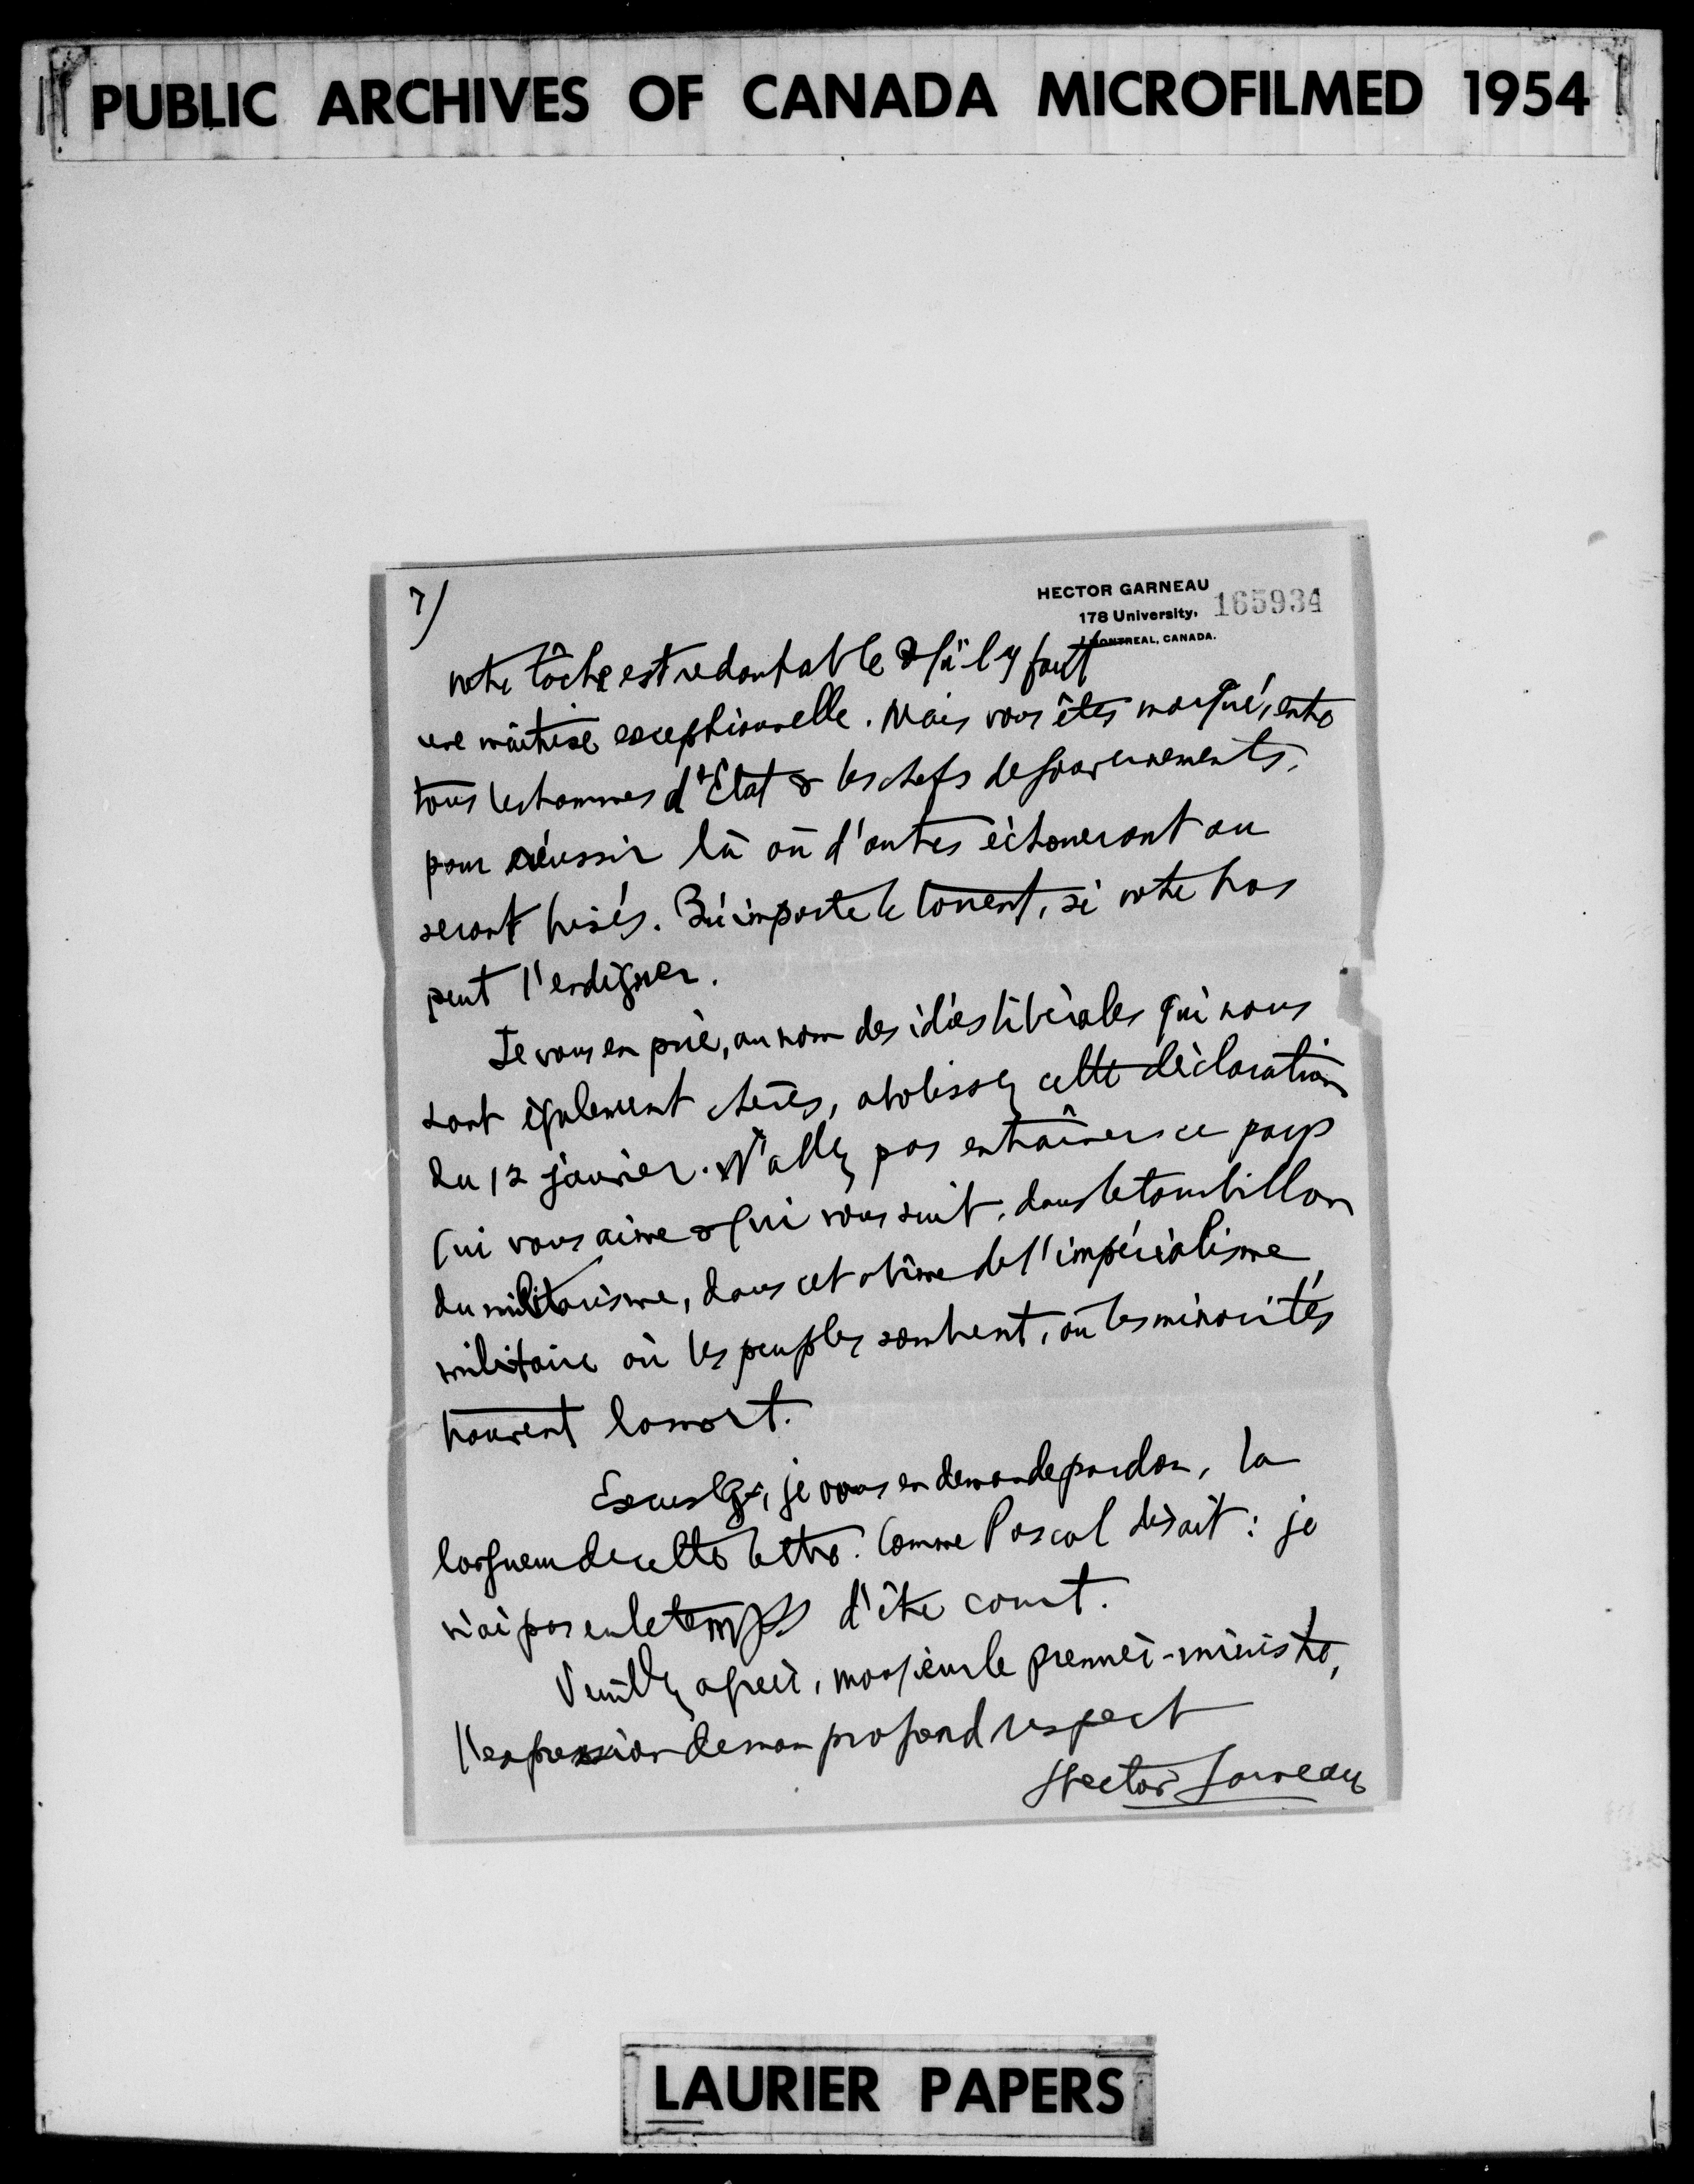 PUBLIC ARCHIVES OF CANADA MICROFILMED 1954
7/
HECTOR GARNEAU
178 University,
MONTREAL, CANADA.
165934
votre tâche est redoutable & qu'il y faut
une maîtrise exceptionnelle. Mais vous êtes marqué, entre
tous les hommes d'Etat & les chefs de gouvernements,
pour réussir là où d'autres échoueront ou
seront brisés. Qu'importe le torrent, si votre bras
peut l'endiguer.
Je vous en prie, au nom des idées libérales qui nous
sont également chères, abolissez cette déclaration
du 12 janvier. N'allez pas entraîner ce pays
qui vous aime & qui vous suit, dans le tourbillon
du militarisme, dans cet abîme de l'impérialisme
militaire où les peuples sombrent, où les minorités
trouvent la mort.
Excusez, je vous en demande pardon, la
longueur de cette lettre. Comme Pascal disait : je
n'ai pas eu le temps d'être court.
Veuillez agréer, monsieur le premier-ministre,
l'expression de mon profond respect
Hector Garneau
LAURIER PAPERS